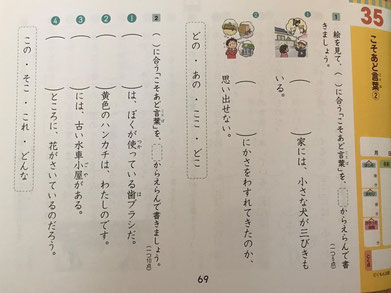 35
こそあど言葉②
1 絵を見て、( )に合う「こそあど言葉」を、 からえらんで書
きましょう。 (一つ5点)
① ( )家には、小さな犬が三びきも
いる。
② ( )にかさをわすれてきたのか、
思い出せない。
どの・あの・ここ・どこ
2 ( )に合う「こそあど言葉」を、 からえらんで書きましょう。 (一つ10点)
① ( )は、ぼくが使っている歯ブラシだ。
② ( )黄色のハンカチは、わたしのです。
③ ( )には、古い水車小屋がある。
④ ( )ところに、花がさいているのだろう。
この・そこ・これ・どんな
69